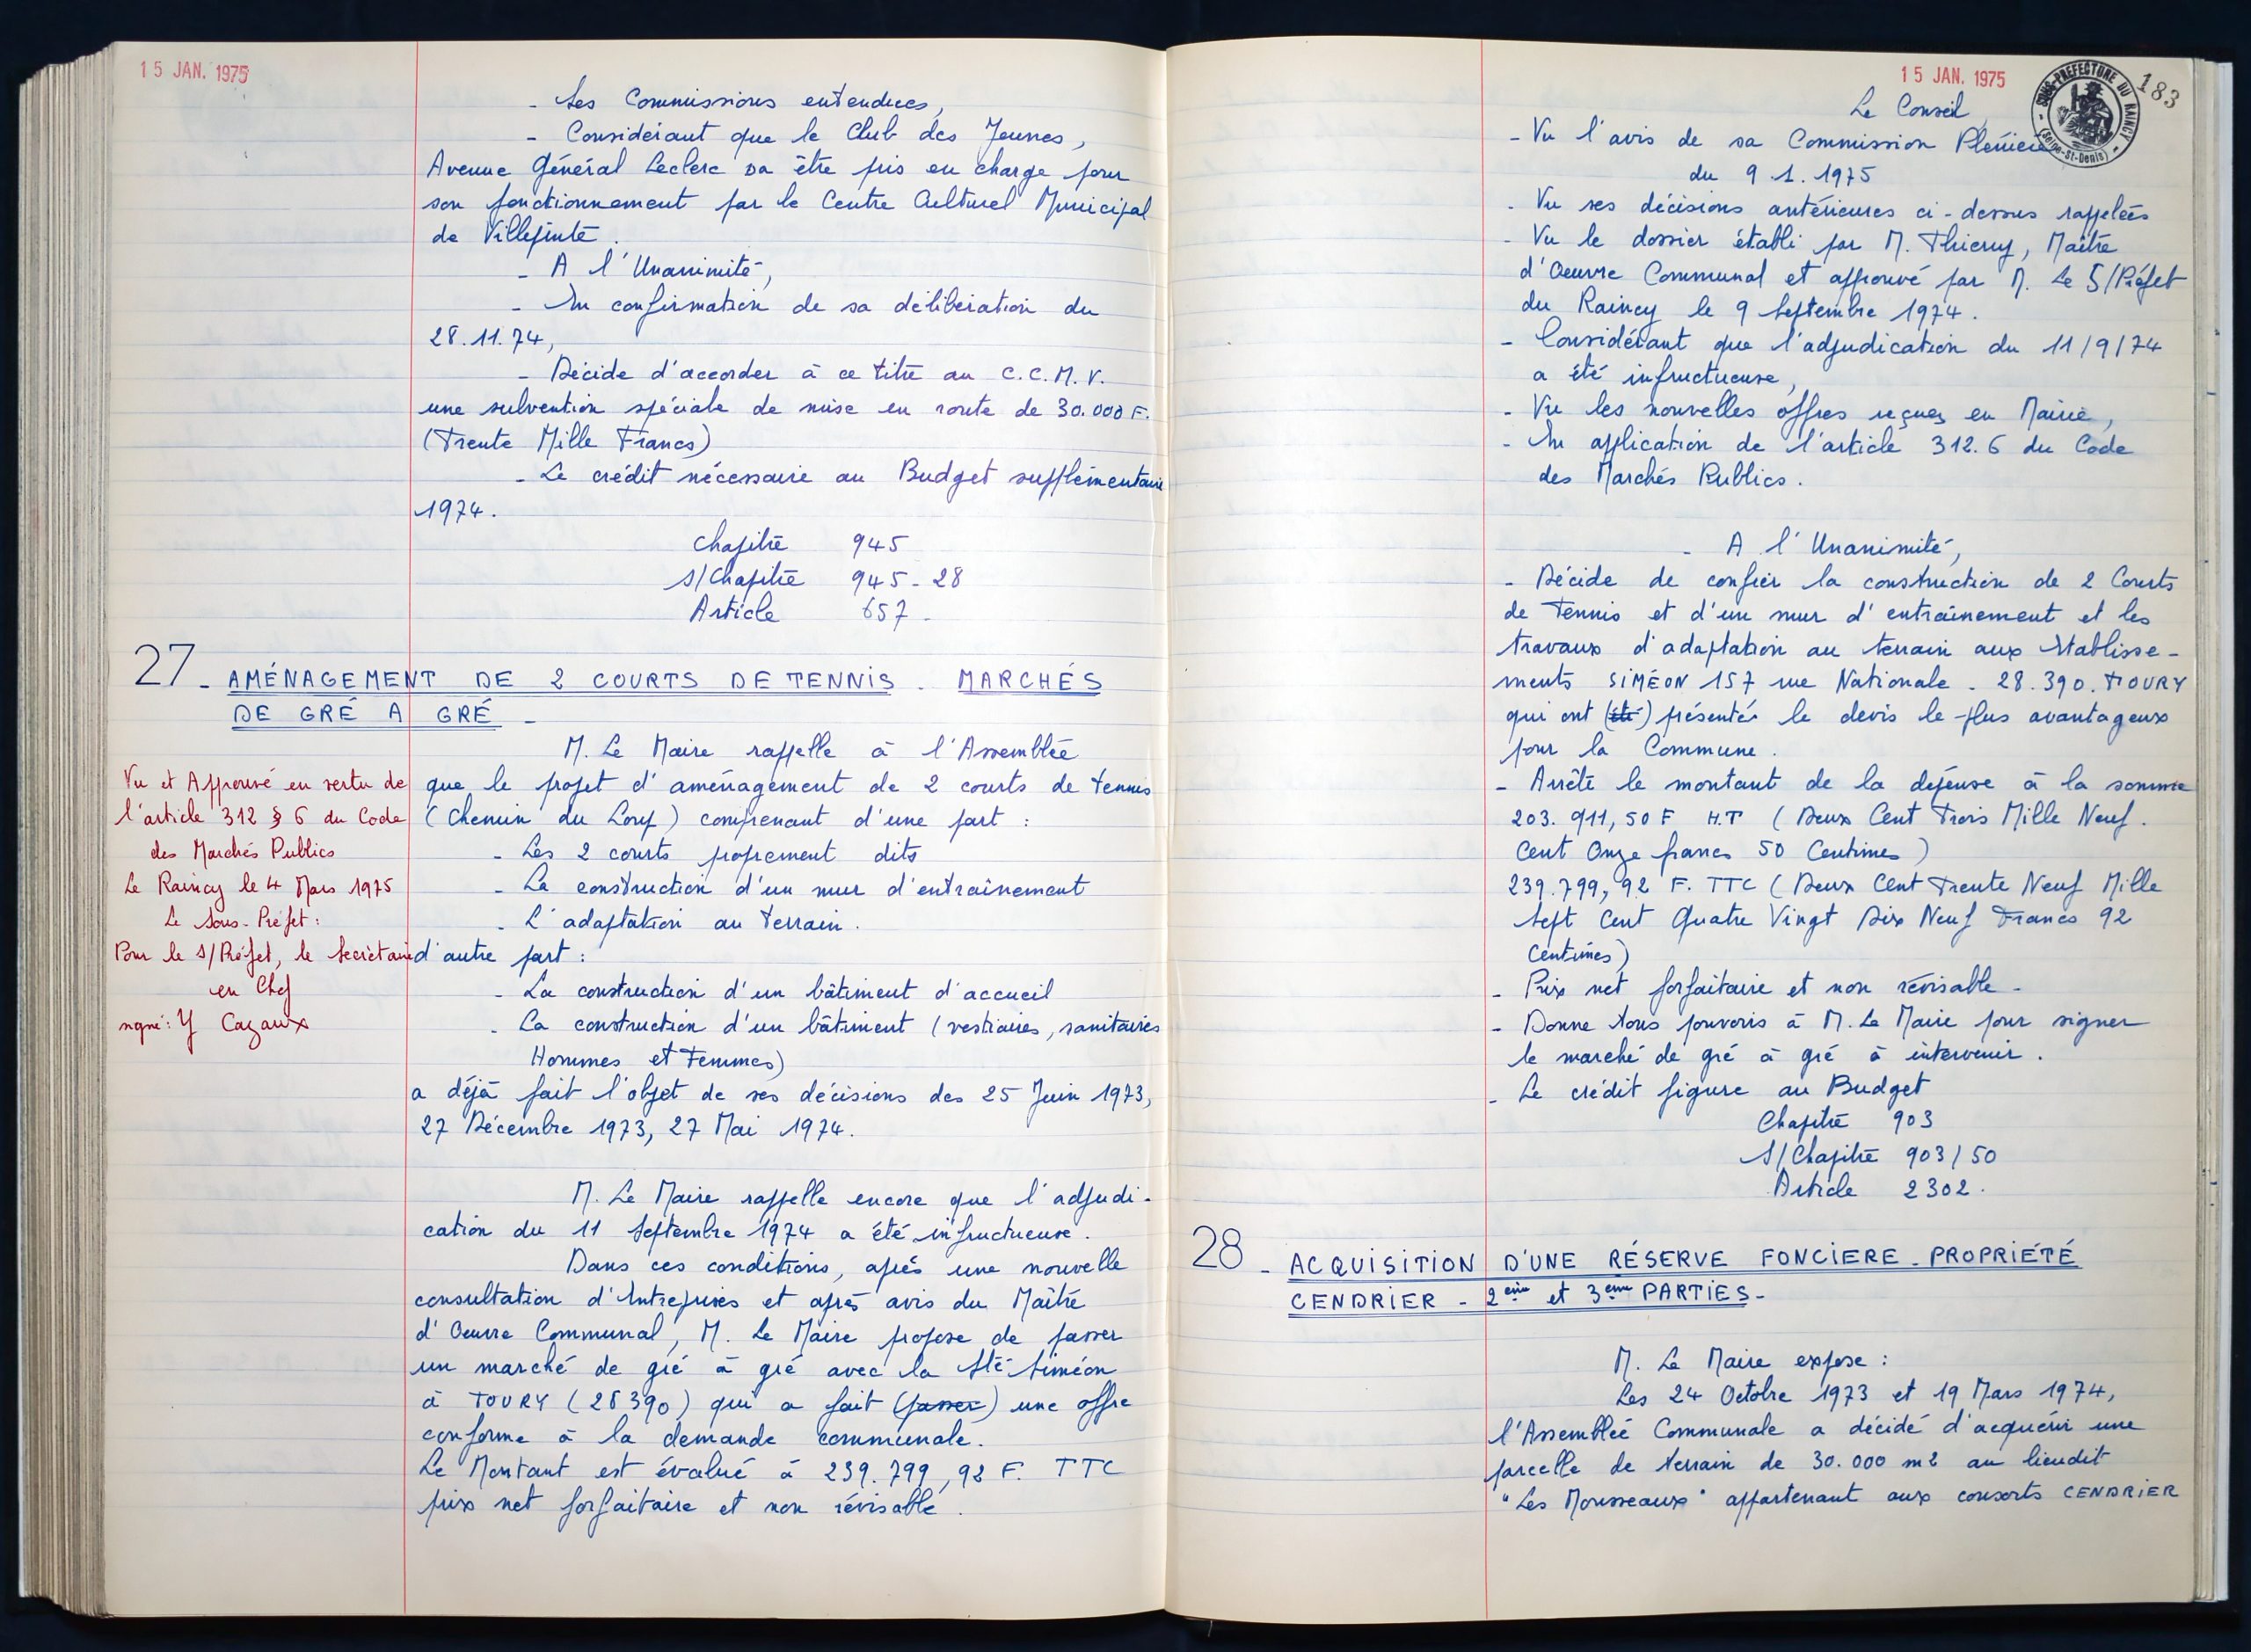 15 JAN. 1975
- Les Commissions entendues,
- Considérant que le Club des Jeunes,
Avenue Général Leclerc va être pris en charge pour
son fonctionnement par le Centre Culturel Municipal
de Villepinte.
- A l'Unanimité,
- En confirmation de sa délibération du
28.11.74,
- Décide d'accorder à ce titre au C.C.M.V.
une subvention spéciale de mise en route de 30.000 F.
(Trente Mille Francs)
- Le crédit nécessaire au Budget supplémentaire
1974.
Chapitre 945
S/Chapitre 945-28
Article 657-
27 - AMÉNAGEMENT DE 2 COURTS DE TENNIS. MARCHÉS
DE GRÉ A GRÉ -
M. Le Maire rappelle à l'Assemblée
que le projet d'aménagement de 2 courts de tennis
(Chemin du Loup) comprenant d'une part :
- Les 2 courts proprement dits
- La construction d'un mur d'entraînement
- L'adaptation au terrain.
d'autre part :
- La construction d'un bâtiment d'accueil
- La construction d'un bâtiment (vestiaires, sanitaires
Hommes et Femmes)
a déjà fait l'objet de ses décisions des 25 Juin 1973,
27 Décembre 1973, 27 Mai 1974.
M. Le Maire rappelle encore que l'adjudi-
cation du 11 Septembre 1974 a été infructueuse.
Dans ces conditions, après une nouvelle
consultation d'Entreprises et après avis du Maître
d'Oeuvre Communal, M. Le Maire propose de passer
un marché de gré à gré avec la Sté Siméon
à TOURY (28390) qui a fait (passer) une offre
conforme à la demande communale.
Le Montant est évalué à 239.799,92 F. TTC
prix net forfaitaire et non révisable.
Vu et Approuvé en vertu de
l'article 312 § 6 du Code
des Marchés Publics
Le Raincy le 4 Mars 1975
Le Sous-Préfet :
Pour le S/Préfet, le Secrétaire
en Chef
signé : Y Cazaux
15 JAN. 1975
SOUS-PREFECTURE DU RAINCY
(Seine-St-Denis)
183
Le Conseil,
- Vu l'avis de sa Commission Plénière
du 9.1.1975
- Vu ses décisions antérieures ci-dessus rappelées
- Vu le dossier établi par M. Thierry, Maître
d'Oeuvre Communal et approuvé par M. Le S/Préfet
du Raincy le 9 Septembre 1974.
- Considérant que l'adjudication du 11/9/74
a été infructueuse,
- Vu les nouvelles offres reçues en Mairie,
- En application de l'article 312.6 du Code
des Marchés Publics.
- A l'Unanimité,
- Décide de confier la construction de 2 Courts
de Tennis et d'un mur d'entraînement et les
travaux d'adaptation au terrain aux Etablisse-
ments SIMÉON 157 rue Nationale. 28.390. TOURY
qui ont (été) présenté le devis le plus avantageux
pour la Commune.
- Arrête le montant de la dépense à la somme
203.911,50 F H.T (Deux Cent Trois Mille Neuf.
Cent Onze francs 50 Centimes)
239.799,92 F. TTC (Deux Cent Trente Neuf Mille
Sept Cent Quatre Vingt Dix Neuf Francs 92
Centimes)
- Prix net forfaitaire et non révisable -
- Donne tous pouvoirs à M. Le Maire pour signer
le marché de gré à gré à intervenir.
- Le crédit figure au Budget
Chapitre 903
S/Chapitre 903/50
Article 2302.
28 - ACQUISITION D'UNE RÉSERVE FONCIERE - PROPRIÉTÉ
CENDRIER - 2ème et 3ème PARTIES -
M. Le Maire expose :
Les 24 Octobre 1973 et 19 Mars 1974,
l'Assemblée Communale a décidé d'acquérir une
parcelle de terrain de 30.000 m2 au lieudit
"Les Mousseaux" appartenant aux consorts CENDRIER